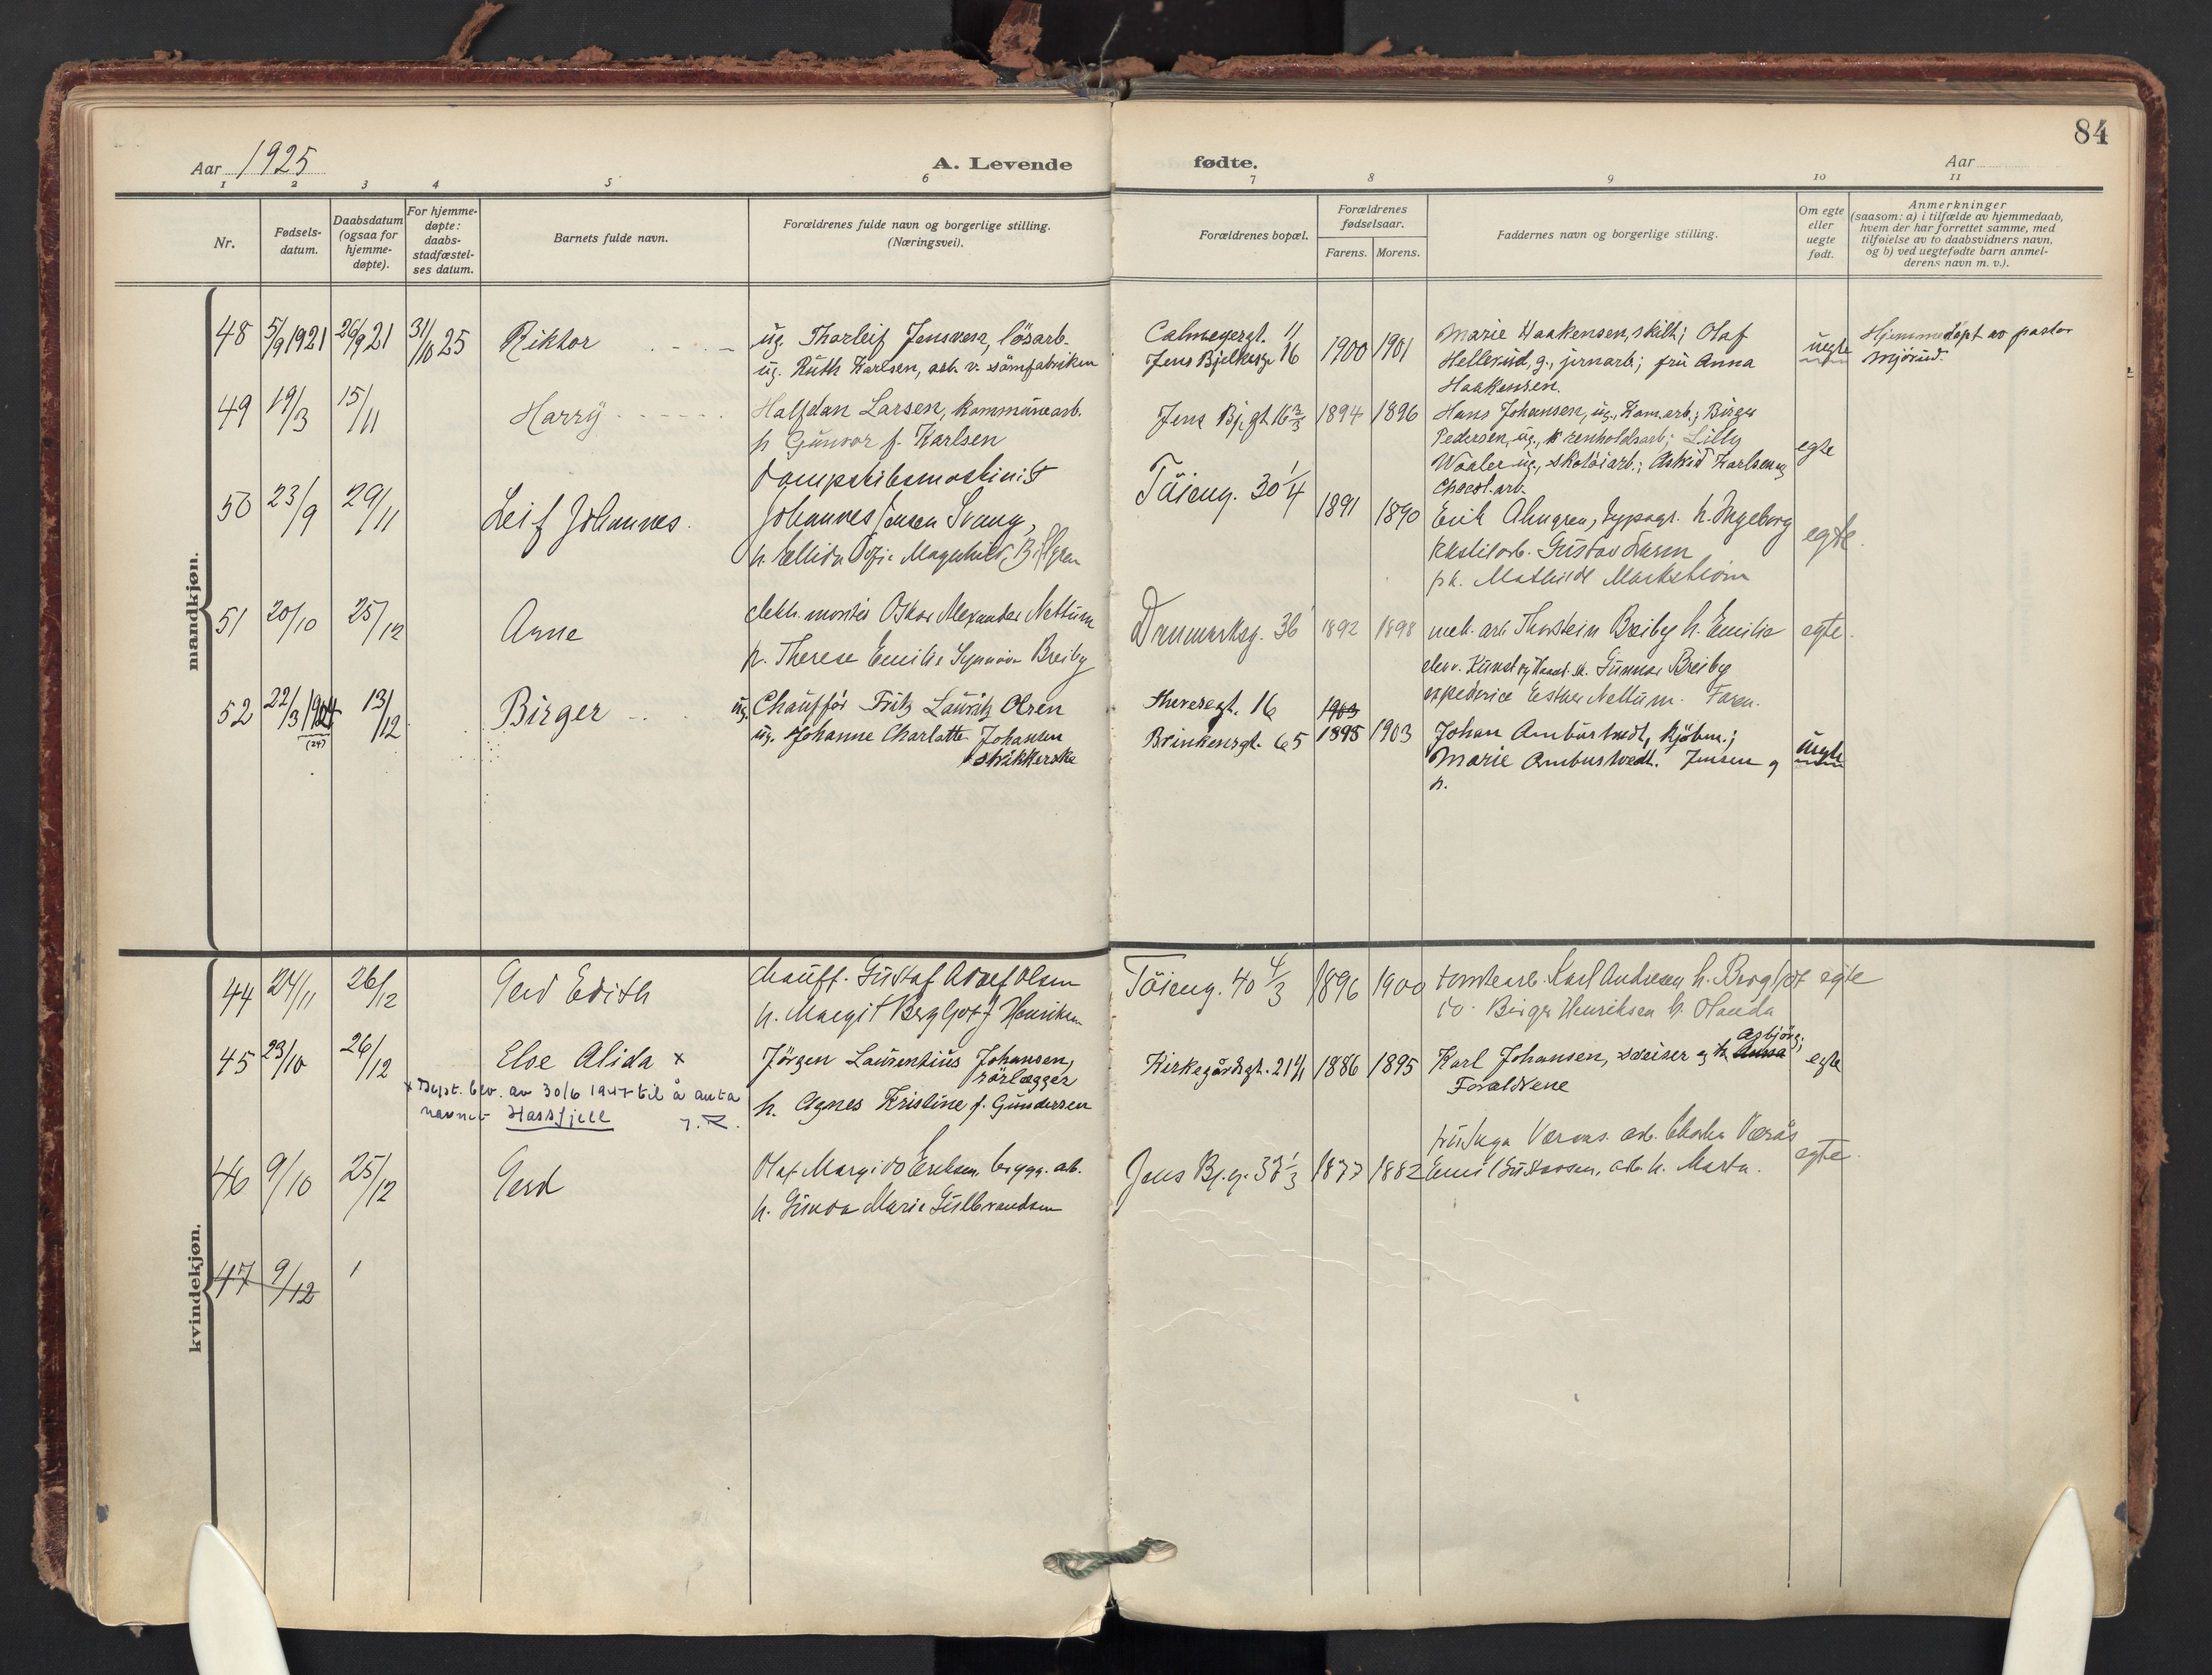 84
Aar 1925
A. Levende
fødte.
Aar
1 2 3 4 5 6 7 8 9 10 11
Nr.
Fødsels-
datum.
Daabsdatum
(ogsaa for
hjemme-
døpte).
For hjemme-
døpte:
daabs-
stadfæstel-
ses datum.
Barnets fulde navn.
Forældrenes fulde navn og borgerlige stilling.
(Næringsvei).
Forældrenes bopæl.
Forældrenes
fødselsaar.
Farens. Morens.
Faddernes navn og borgerlige stilling.
Om egte
eller
uegte
født.
Anmerkninger
(saasom: a) i tilfælde av hjemmedaab,
hvem der har forrettet samme, med
tilføielse av to daabsvidners navn,
og b) ved uegtefødte barn anmel-
derens navn m. v.).
mandkjøn.
48 5/9 1921 26/9 21 31/10 25 Riktor
ug. Thorleif Jensen, løsarb.
ug. Ruth Karlsen, arb. v. sømfabriken
Calmeyergt. 11
Jens Bjelkesg. 16
1900 1901
Marie Haakensen, skilt; Olaf
Hellerud, g., jernarb; fru Anna
Haakensen.
uegte
Hjemmedøpt av pastor
Mjörud.
49 19/3 15/11 Harry
Halfdan Larsen, kommunearb.
h Gunvor f. Karlsen
Jens Bj. gt 16 3/3
1894 1896
Hans Johansen, ug., Kom. arb.; Birger
Pedersen, ug., renholdsarb; Lilly
Waaler ug., skotøiarb.; Astrid Karlsen ug
Chocol. arb.
egte
50 23/9 29/11 Leif Johannes.
Dampskibsmaskinist
Johannes Jensen Svang,
h. Ellida Sofie Magnhild,
Töieng. 30 1/4
1891 1890
Erik Almgren, typogr. h. Ingeborg
tekstilarb. Gustav Larsen
pk. Mathilde Markström
egte.
51 20/10 25/12 Arne
elektr. montör Oskar Alexander Nettum
h. Therese Emilie Synnöve Breiby
Danmarksg. 36
1892 1898
mek. arb. Thorstein Breiby h. Emilie
elev v. Kunst og Haandv. sk. Gunnar Breiby
expedrice Esther Nettum. Faren.
egte.
52 22/3 1924 13/12 Birger
(24)
ug. Chauffør Fritz Lauritz Olsen
ug. Johanne Charlotte Johansen
strikkerske
Theresegt. 16
Brinkensgt. 65
1903
1898 1903
Johan Amburstvedt, kjöbm.;
Marie Amburstvedt. Jensen og
h.
uegte
kvindekjøn.
44 24/11 26/12 Gerd Edith
chauff. Gustaf Adolf Olsen
h. Margit Bergljot f Henriksen
Töieng. 40 4/3
1896 1900
tomtearb. Karl Andresen h. Bergljot
do. Birger Henriksen h. Olanda
egte
45 23/10 26/12 Else Alida x
x Dept. bev. av 30/6 1947 til å anta
navnet Hassfjell
Jørgen Laurentius Johansen,
rørlægger
h. Agnes Kristine f. Gundersen
Kirkegårdsgt. 21 4/1
1886 1895
Asbjörg;
Karl Johansen, sveiser og h. Anna
Forældrene
egte
46 9/10 25/12 Gerd
Olaf Margido Eriksen, brygg. arb.
h. Gunda Marie Gulbrandsen
Jens Bj. g. 37 1/3
1877 1882
fru Inga Veraas. arb. Charles Verås
Emil Gustavsen, arb. h. Marta.
egte.
47 9/12 1